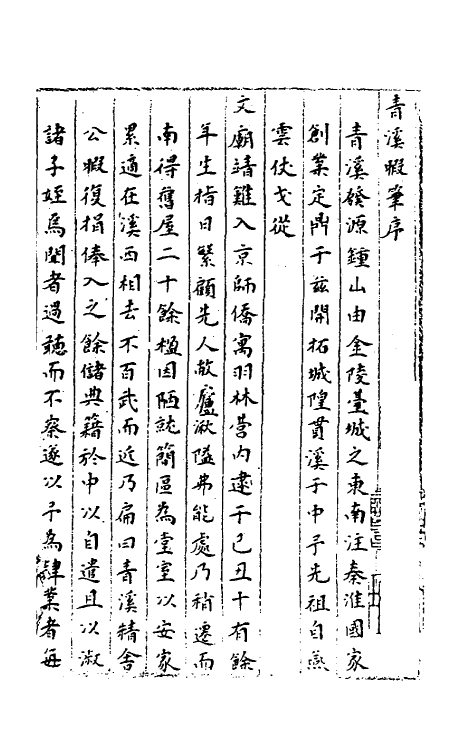 青溪暇筆序
青溪發源鍾山由金陵臺城之東南注秦淮國家
創業定鼎于茲開拓城隍貫溪于中予先祖自燕
雲仗戈從
文廟靖難入京師僑寓羽林營内逮于己丑十有餘
年生指日繁顧先人敝廬湫隘弗能處乃稍遷而
南得舊屋二十餘楹因陋就簡區為堂室以安家
累適在溪西相去不百武而近乃扁曰青溪精舍
公暇復捐俸入之餘儲典籍於中以自遣且以淑
諸子姪焉聞者過聽而不察遂以予為肄業者每